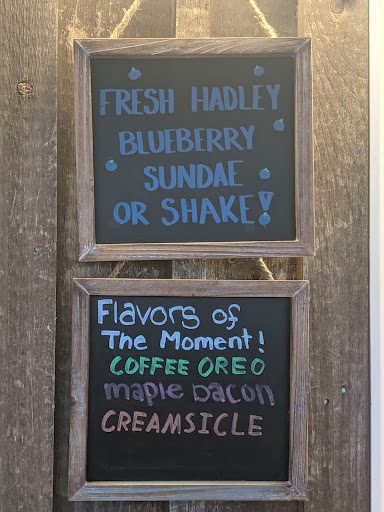 FRESH HADLEY
BLUEBERRY
SUNDAE
OR SHAKE!
Flavors of
The Moment!
COFFEE OREO
maple bacon
CREAMSICLE